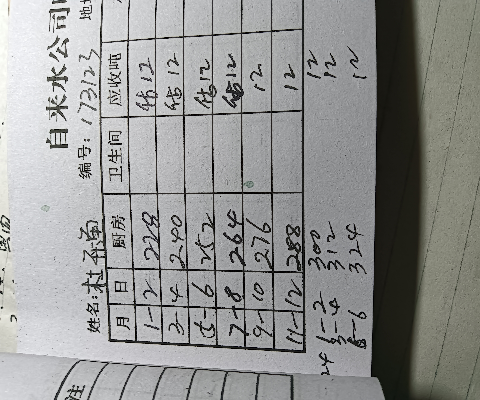 自来水公司
编号: 173123
姓名: 村
月 日 厨房 卫生间 应收吨
1-2 228 估12
3-4 240 估12
5-6 252 估12
7-8 264 估12
9-10 276 12
11-12 288 12
24 1-2 300 12
3-4 312 12
5-6 324 12
注